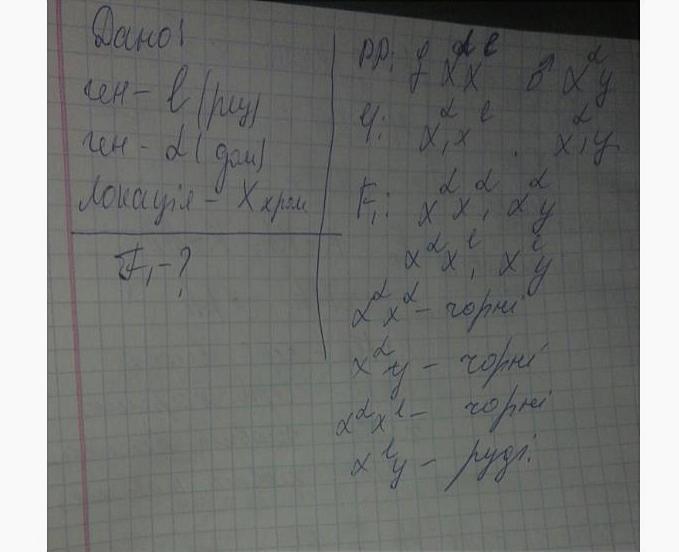 Дано:
ген - l (рец)
ген - d (дом)
Локація - X хром
F₁ - ?
PP: ♀ XᵈXˡ ♂ Xᵈy
Y: Xᵈ, Xˡ . Xᵈ, y
F₁: XᵈXᵈ, Xᵈy
XᵈXˡ, Xˡy
XᵈXᵈ - чорні
Xᵈy - чорні
XᵈXˡ - чорні
Xˡy - руді.